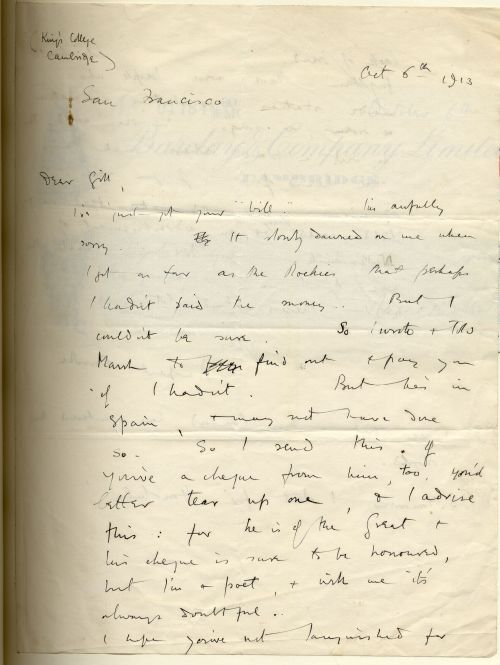 (King's College
Cambridge)
Oct 6th 1913
San Francisco
Dear Gill,
I've just got your "bill". I'm awfully
sorry. It slowly dawned on me when
I got as far as the Rockies that perhaps
I hadn't paid the money.. But I
couldn't be sure. So I wrote to
Marsh to find out & pay you
if I hadn't. But he's in
Spain, & may not have done
so. So I send this. If
you've a cheque from him, too, you'd
better tear up one, & I advise
this: for he is of the Great &
his cheque is sure to be honoured,
but I'm a poet, & with me it's
always doubtful..
I hope you've not languished for